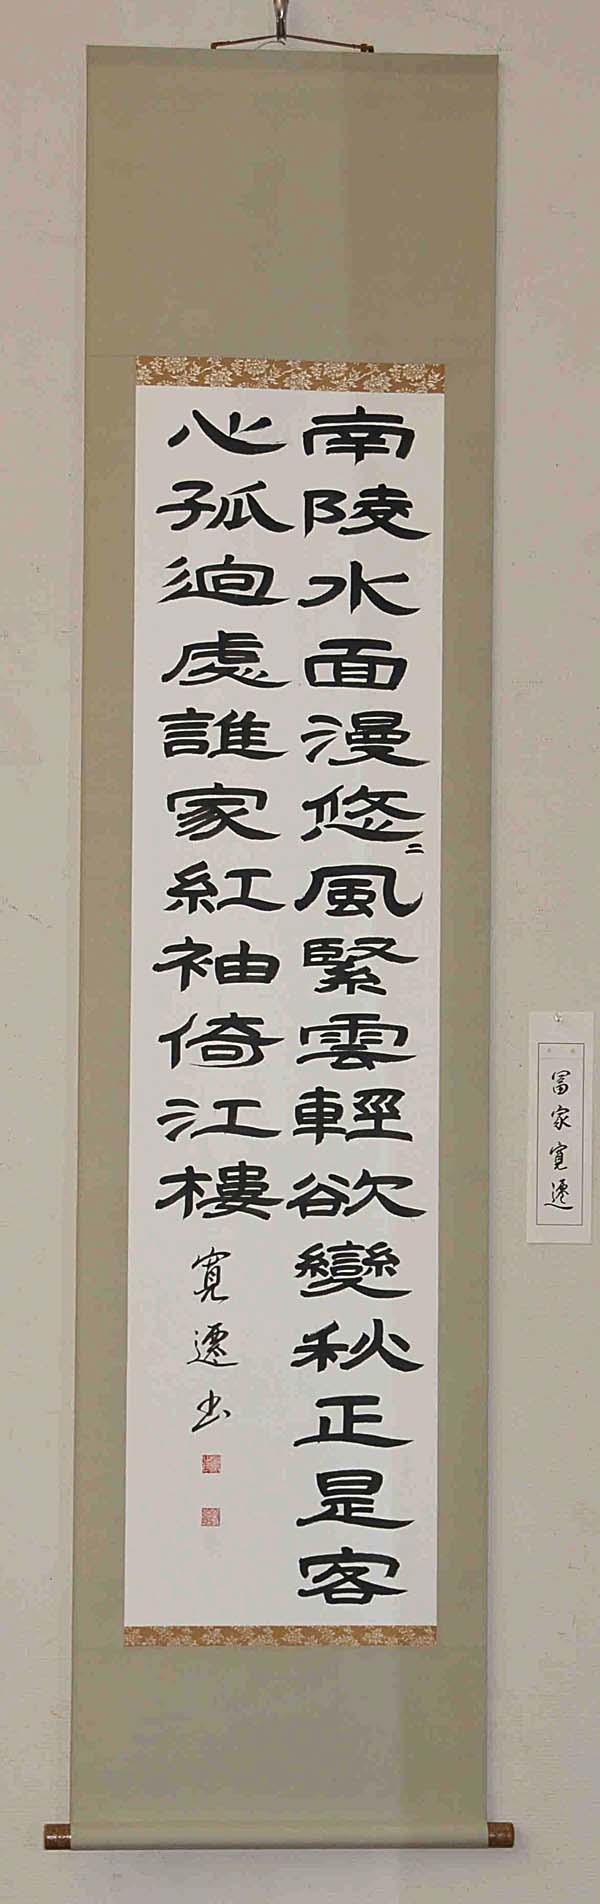 南陵水面漫悠〻風緊雲輕欲變秋正是客
心孤迥處誰家紅袖倚江樓
寛遷書
冨家寛遷